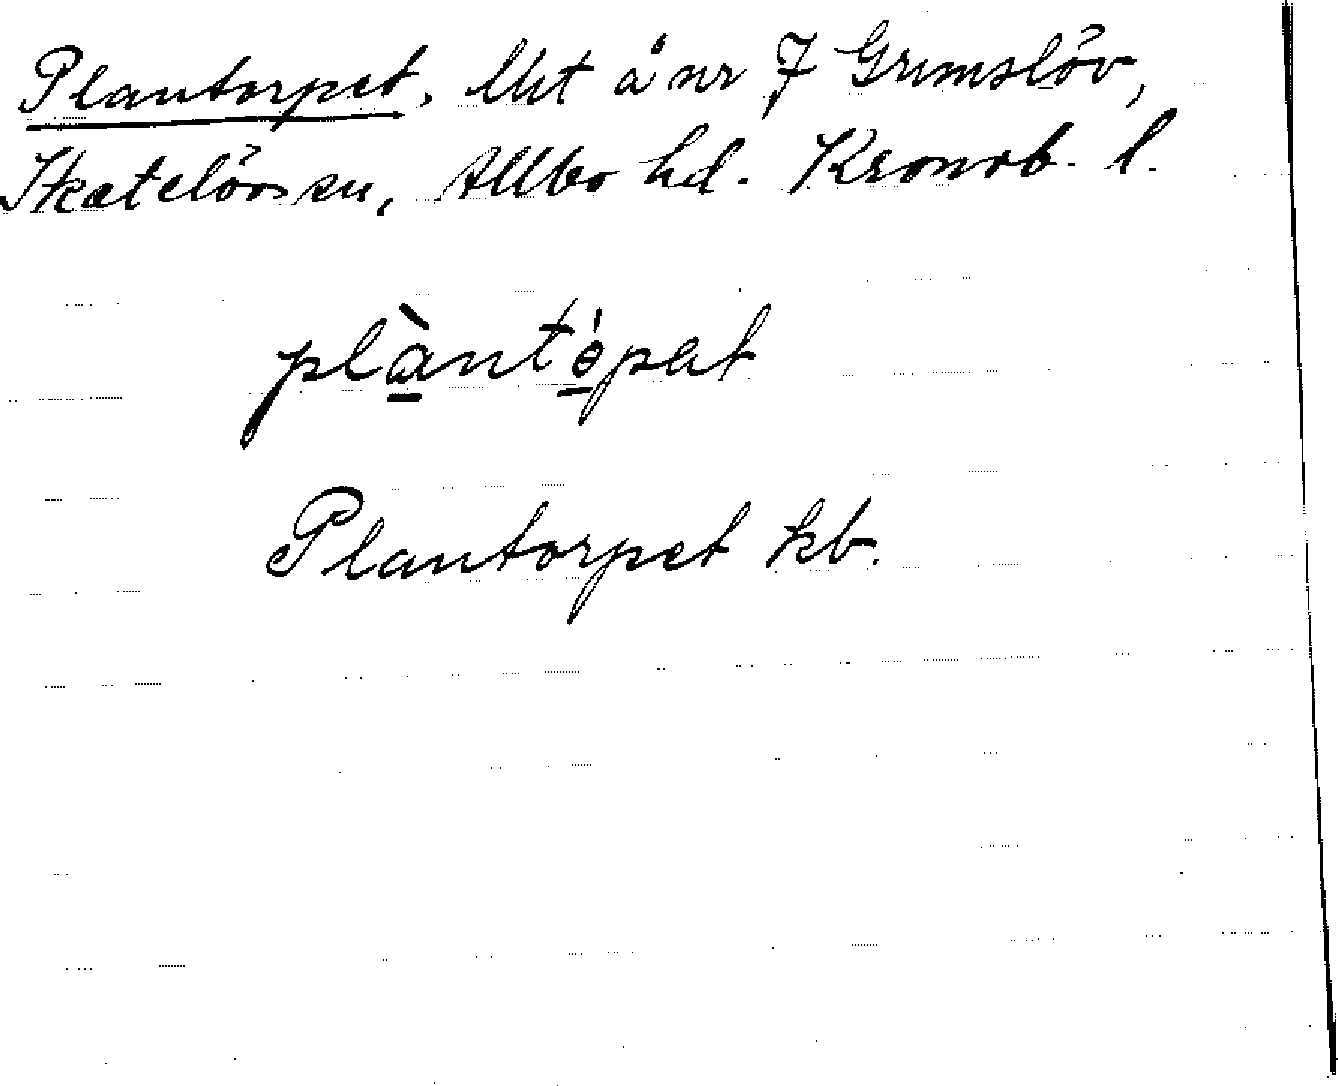 Plantorpet. Utt å nr 7 Grimslöv,
Skatelövs sn, Allbo hd. Kronob. l.
plàntópet
Plantorpet kb.